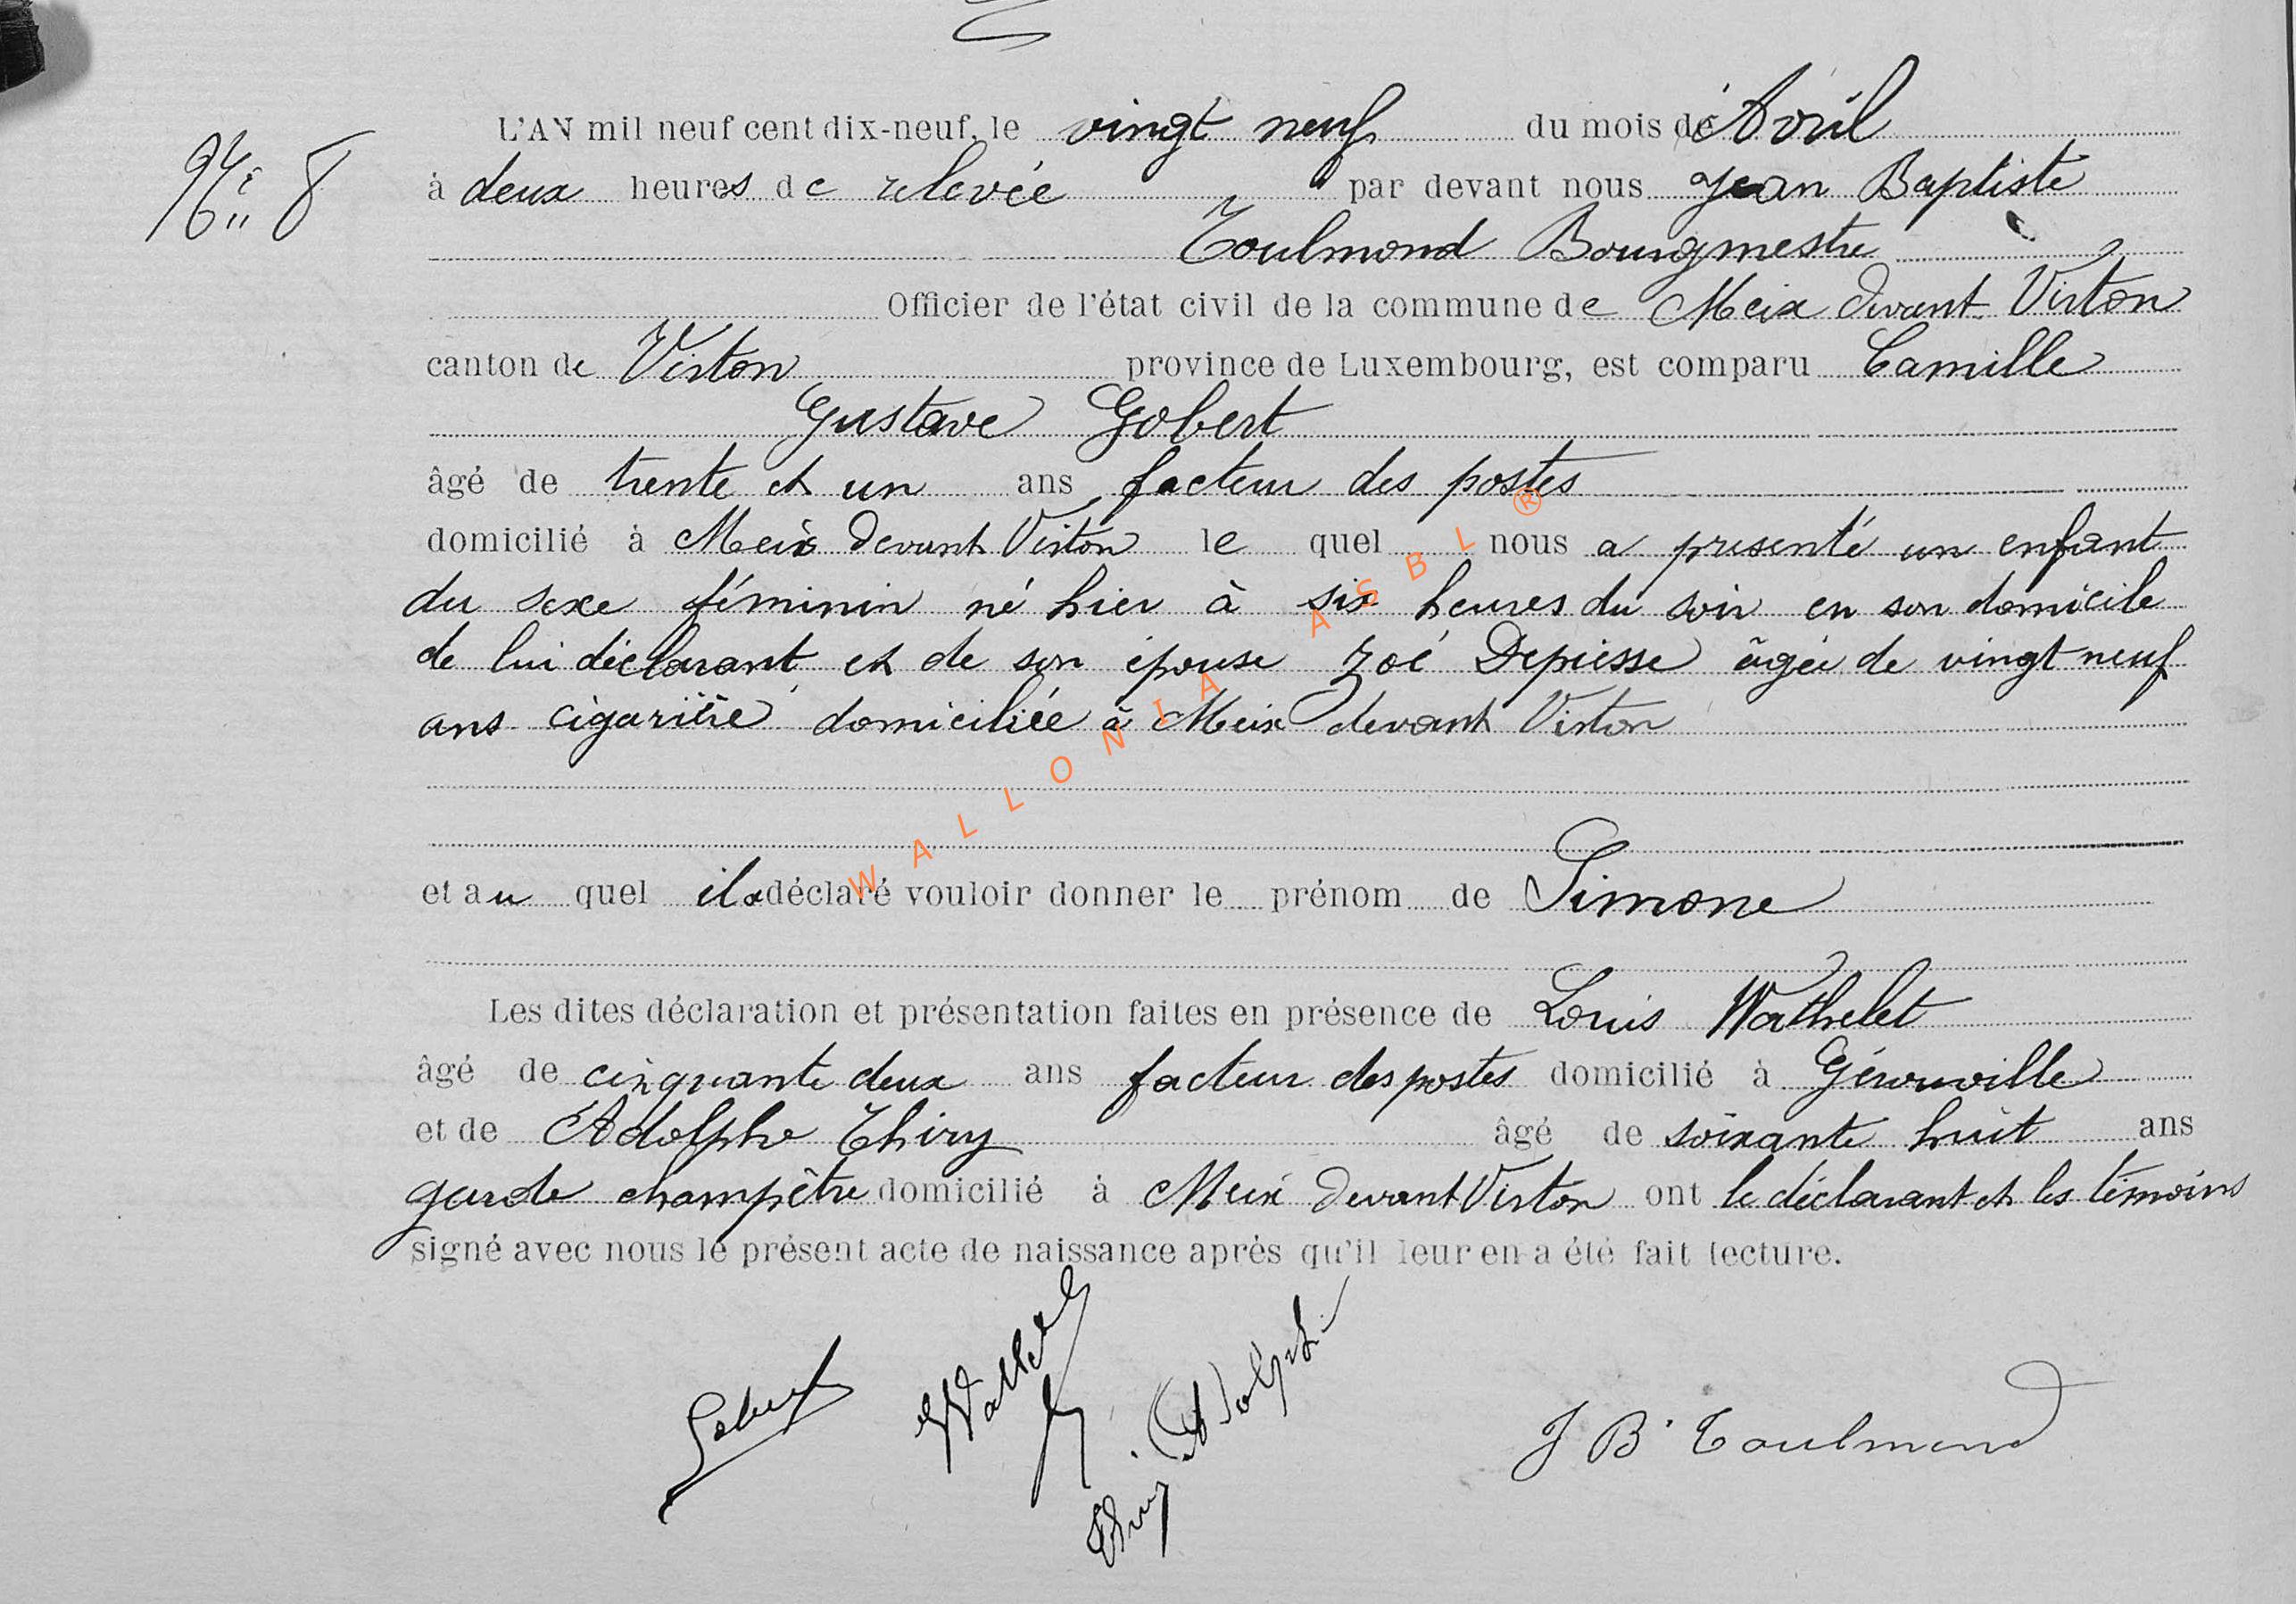 N° 8
L'AN mil neuf cent dix-neuf, le vingt neuf du mois de Avril
à deux heures de relevée par devant nous Jean Baptiste
Toulmond Bourgmestre
Officier de l'état civil de la commune de Meix devant Virton
canton de Virton province de Luxembourg, est comparu Camille
Gustave Gobert
âgé de trente et un ans facteur des postes
domicilié à Meix devant Virton le quel nous a présenté un enfant
du sexe féminin né hier à six heures du soir en son domicile
de lui déclarant et de son épouse Zoé Depiesse âgée de vingt neuf
ans cigarière domiciliée à Meix devant Virton
et au quel il a déclaré vouloir donner le prénom de Simone
Les dites déclaration et présentation faites en présence de Louis Wathelet
âgé de cinquante deux ans facteur des postes domicilié à Gérouville
et de Adolphe Thiry âgé de soixante huit ans
garde champêtre domicilié à Meix devant Virton ont le déclarant et les témoins
signé avec nous le présent acte de naissance après qu'il leur en a été fait lecture.
Gobert
Wathelet
Thiry Adolphe
J B Toulmond
WALLONIA ASBL ®